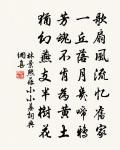 歌扇風流憶舊家
一丘落月幾啼鴉
芳魂不肯為黃土
猶幻燕支半樹花
林景熙蘇小小墓詞典
網喜